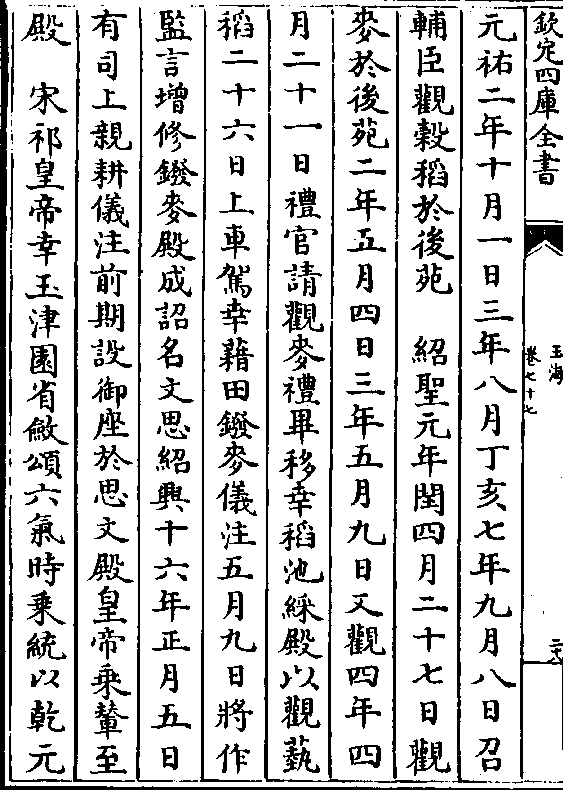 欽定四庫全書
玉海
卷七十七
二六
元祐二年十月一日三年八月丁亥七年九月八日召
輔臣觀穀稻於後苑　紹聖元年閏四月二十七日觀
麥於後苑二年五月四日三年五月九日又觀四年四
月二十一日禮官請觀麥禮畢移幸稻池綵殿以觀蓺
稻二十六日上車駕幸藉田鏺麥儀注五月九日將作
監言增修鏺麥殿成詔名文思紹興十六年正月五日
有司上親耕儀注前期設御座於思文殿皇帝乘輦至
殿　宋祁皇帝幸玉津園省斂頌六氣時乘統以乾元